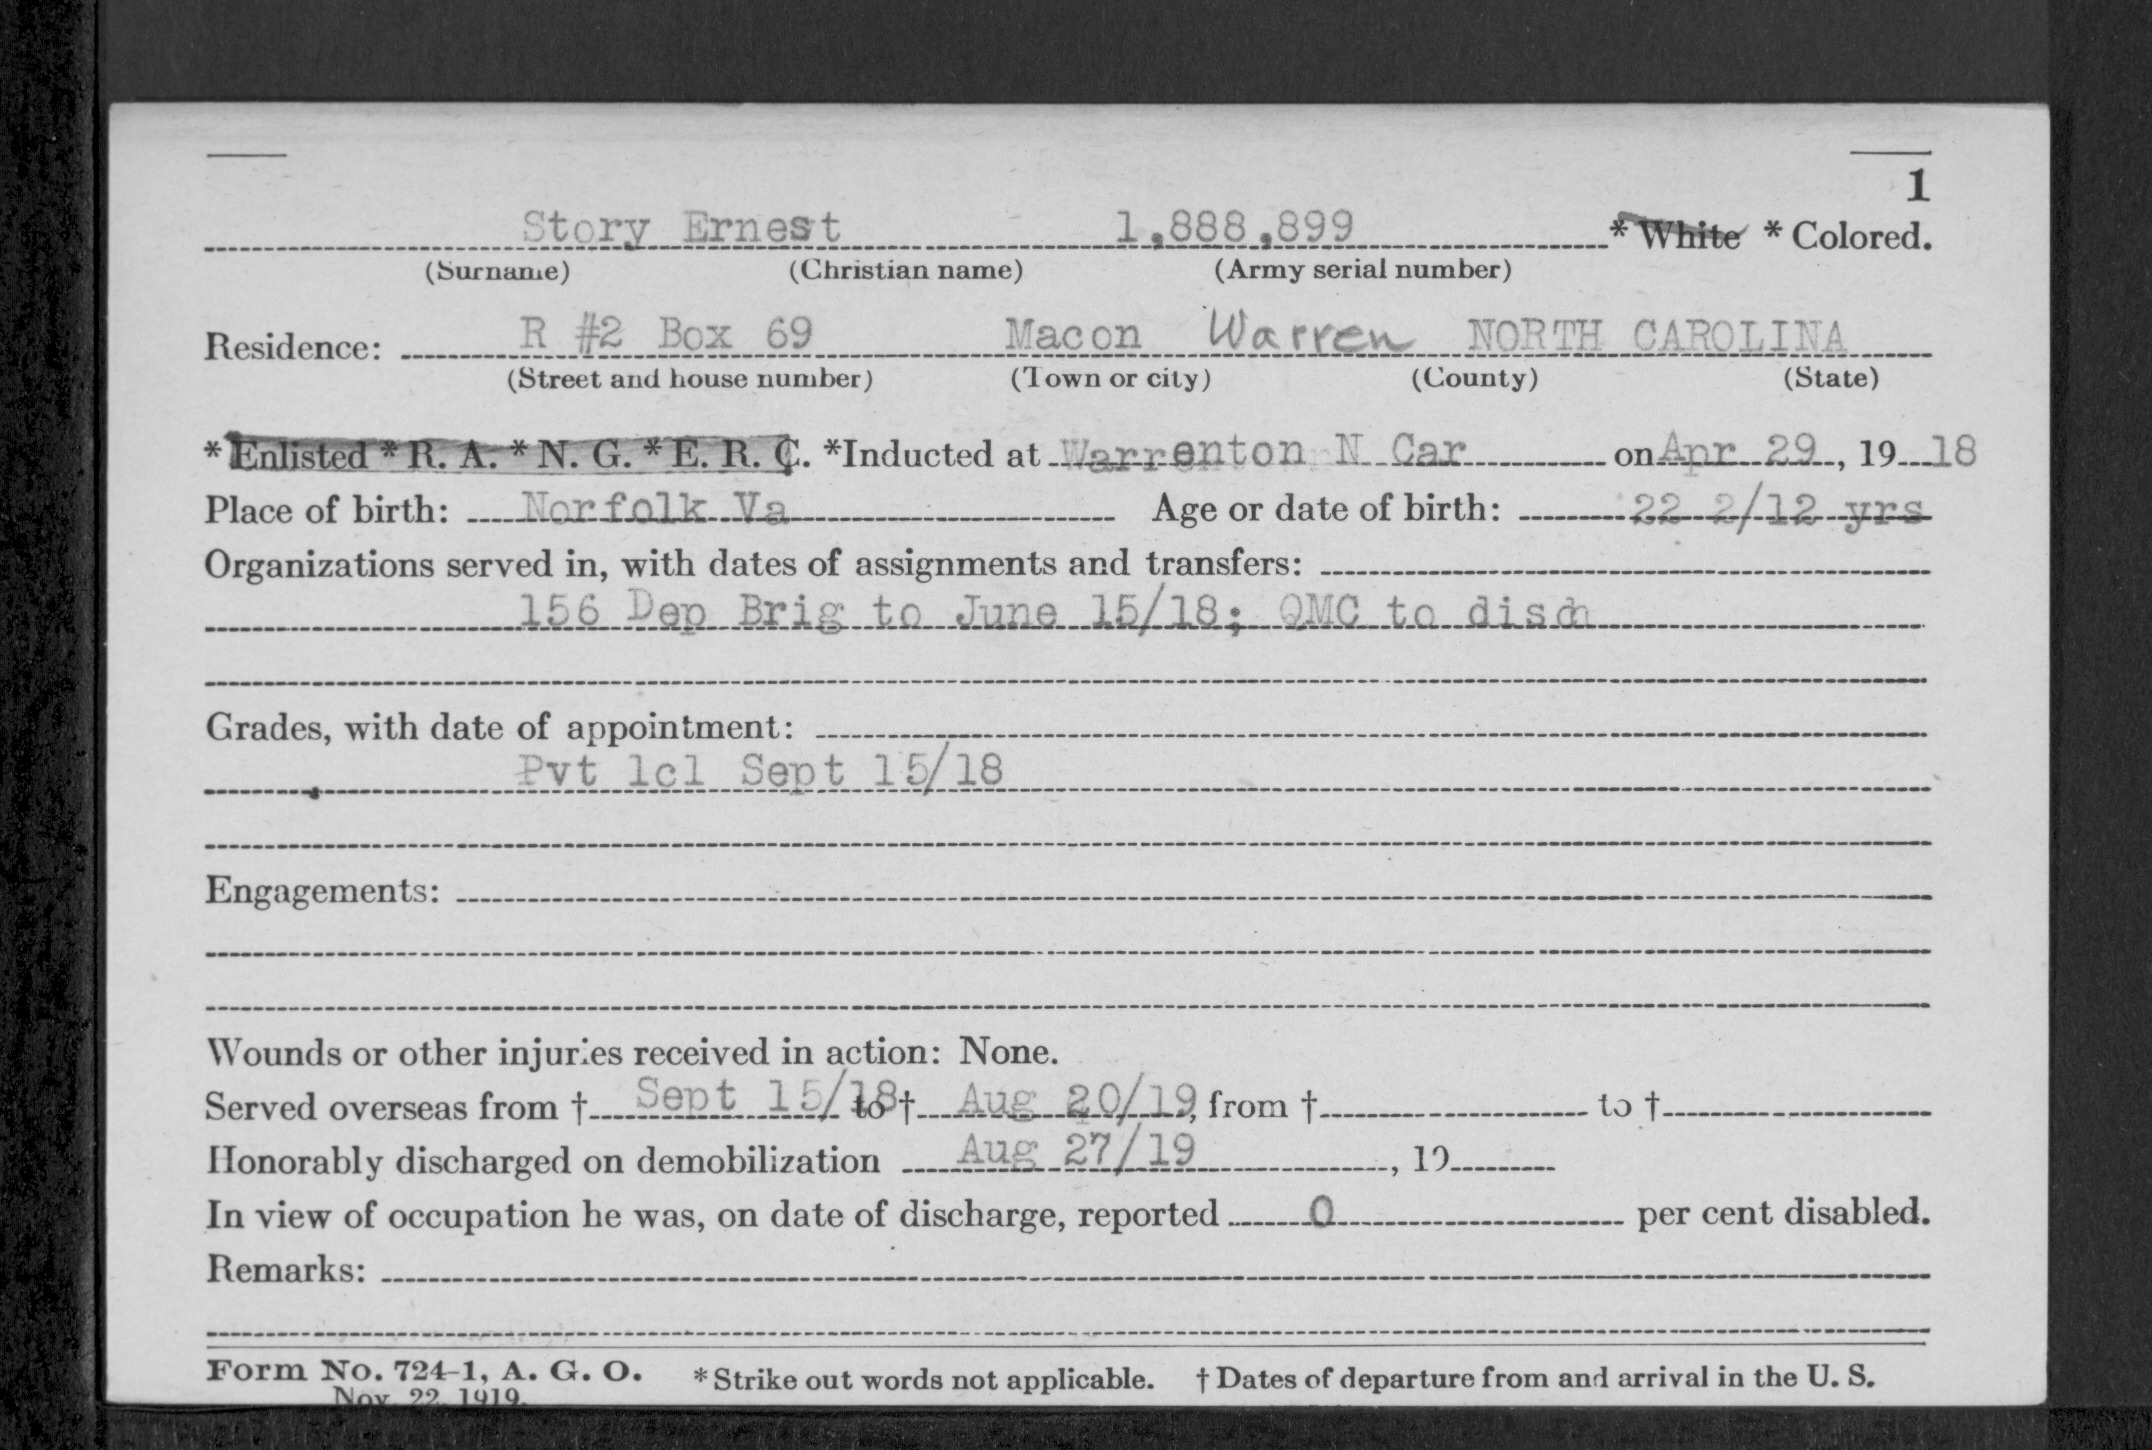 1
Story Ernest 1,888,899 * White * Colored.
(Surname) (Christian name) (Army serial number)
Residence: R #2 Box 69 Macon Warren NORTH CAROLINA
(Street and house number) (Town or city) (County) (State)
* Enlisted * R. A. * N. G. * E. R. C. *Inducted at Warrenton N Car on Apr 29, 19 18
Place of birth: Norfolk Va Age or date of birth: 22 2/12 yrs
Organizations served in, with dates of assignments and transfers:
156 Dep Brig to June 15/18; QMC to disch
Grades, with date of appointment:
Pvt 1cl Sept 15/18
Engagements:
Wounds or other injuries received in action: None.
Served overseas from † Sept 15/18 to † Aug 20/19, from † to †
Honorably discharged on demobilization Aug 27/19, 19
In view of occupation he was, on date of discharge, reported 0 per cent disabled.
Remarks:
Form No. 724-1, A. G. O. * Strike out words not applicable. † Dates of departure from and arrival in the U. S.
Nov. 22, 1919.